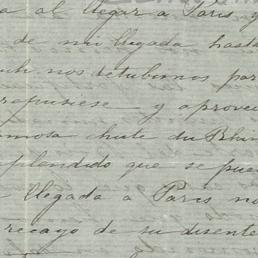 a al llegar a Paris y
de mi llegada hasta
nos detubimos par
repusiese y aprovec
mosa chute du Rhin
splendido que se pue
llegada a Paris no
recayo de su disente